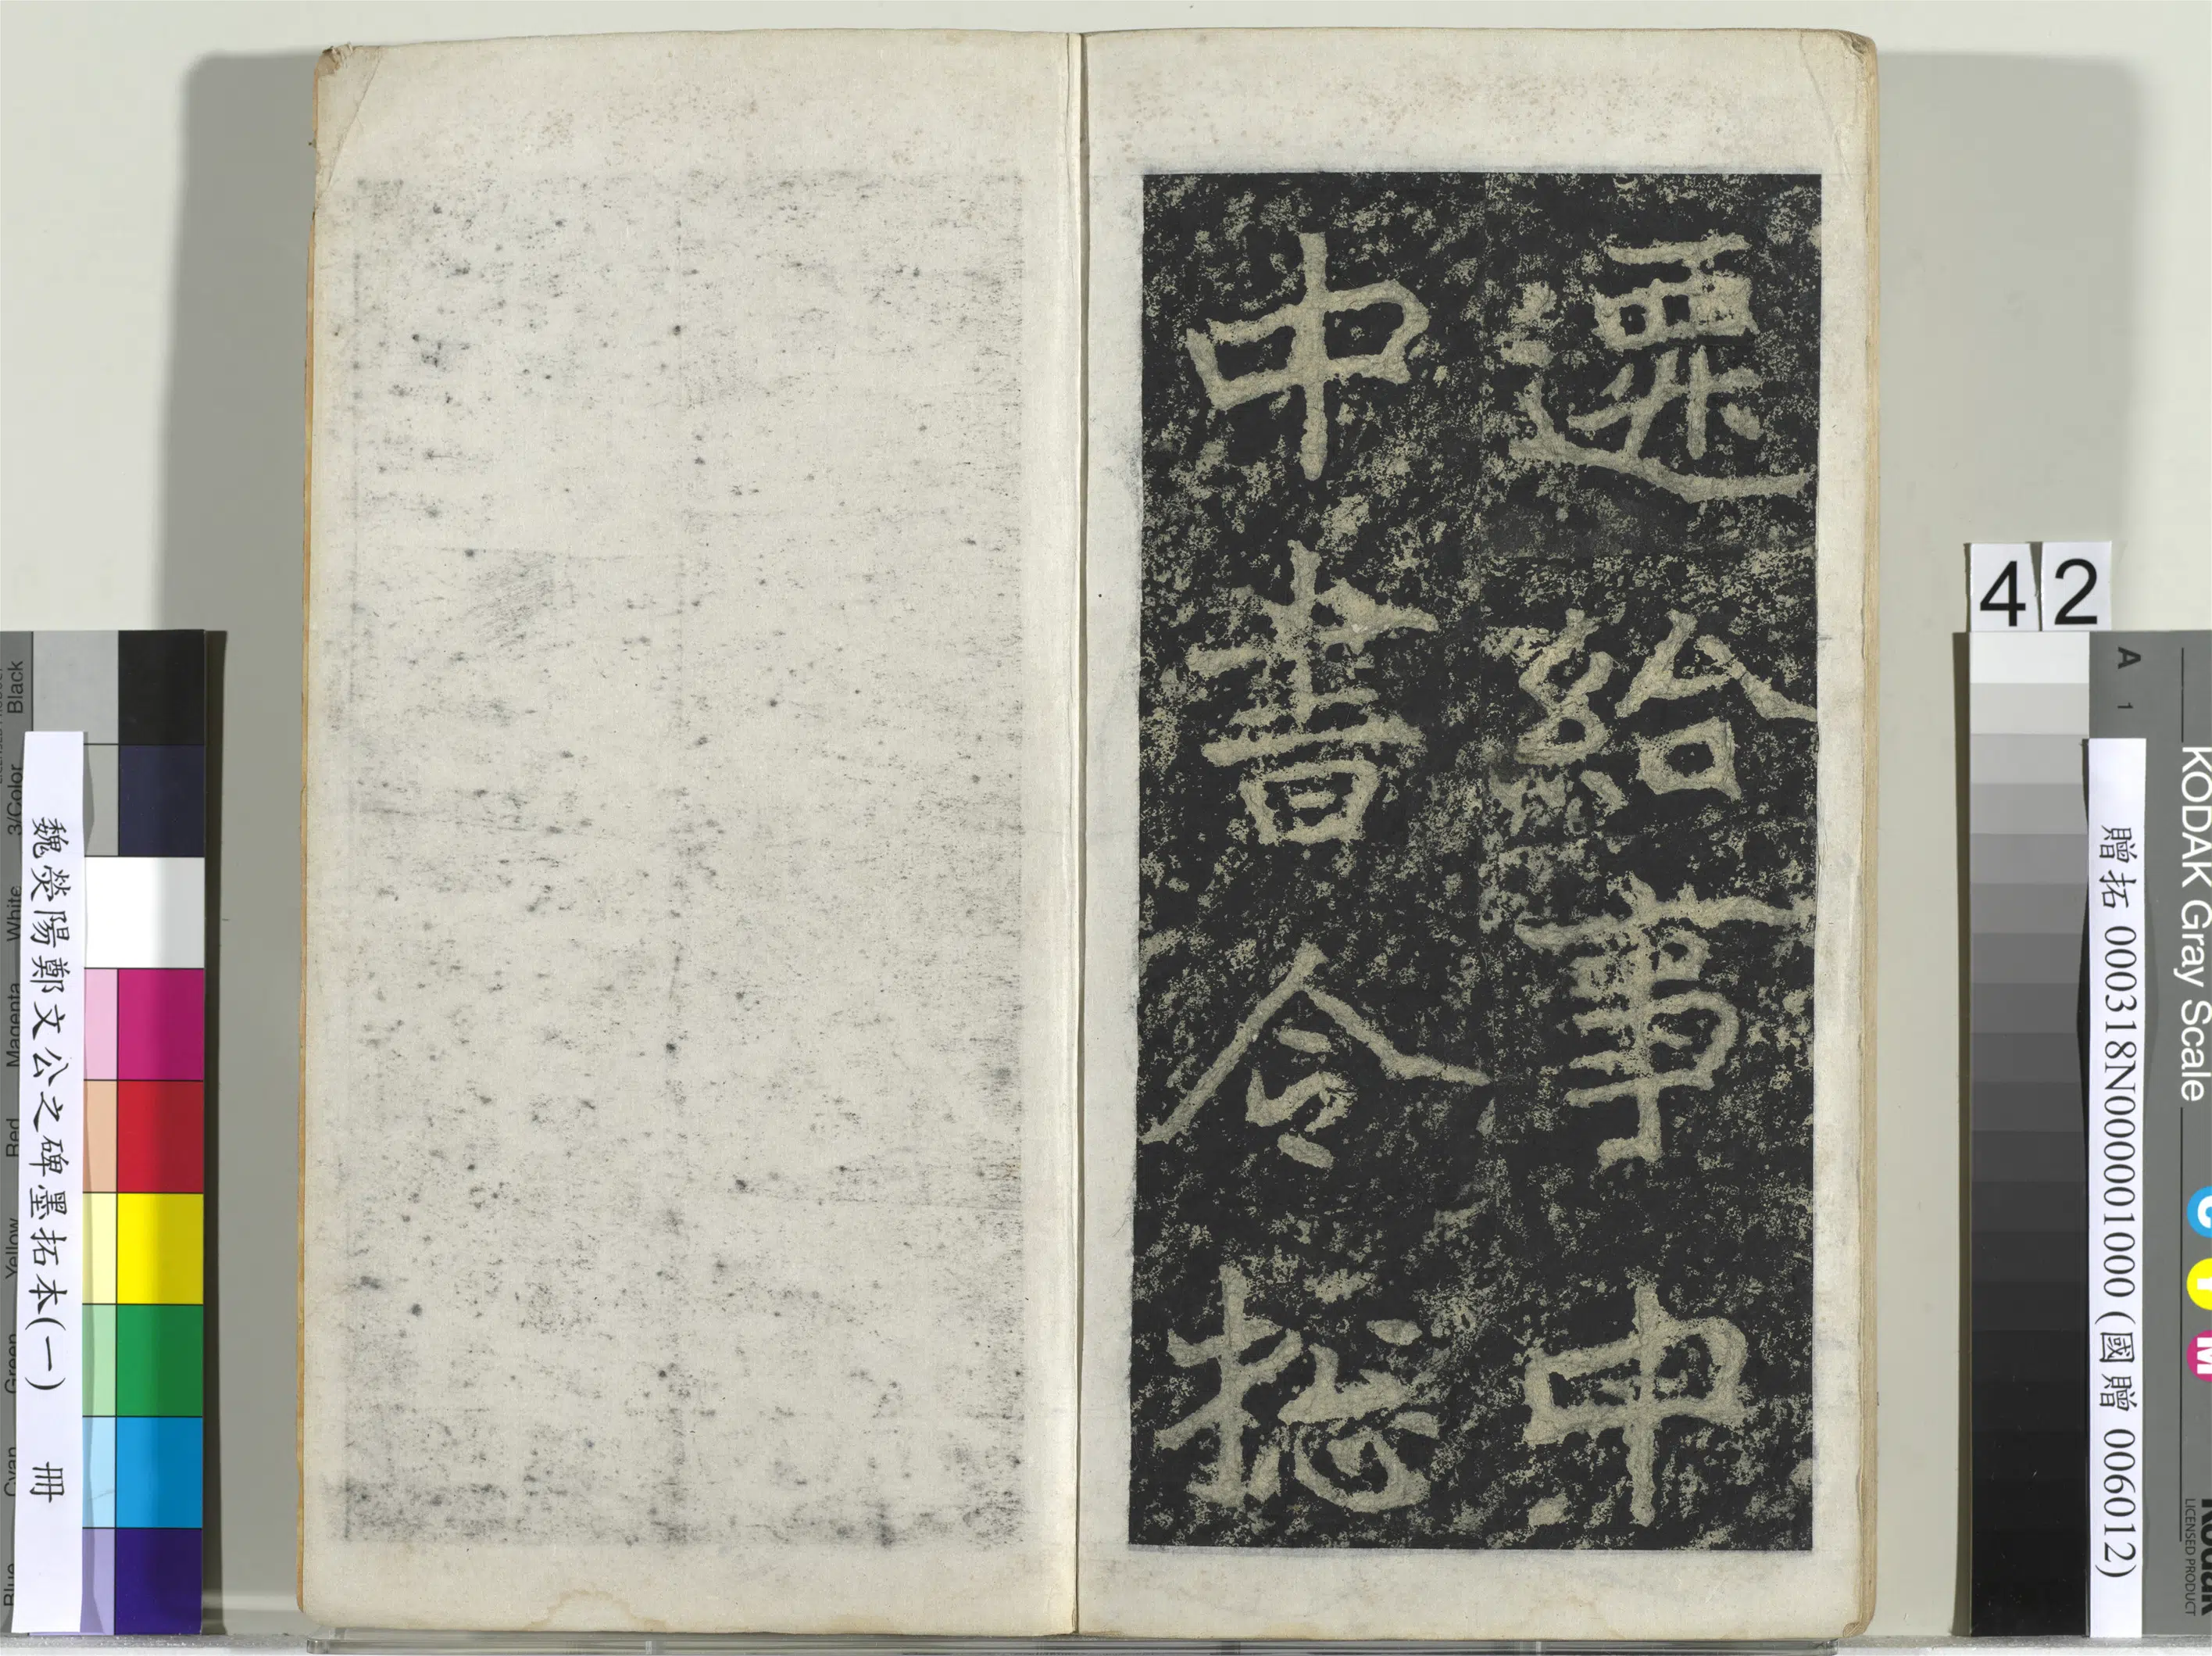 遷給事中
中書令揔
42
魏熒陽鄭文公之碑墨拓本(一) 冊
贈拓 000318N0000001000 (國贈 006012)
KODAK Gray Scale
A 1
C
Y
M
Kodak
LICENSED PRODUCT
Black
3/Color
White
Magenta
Red
Yellow
Green
Cyan
Blue